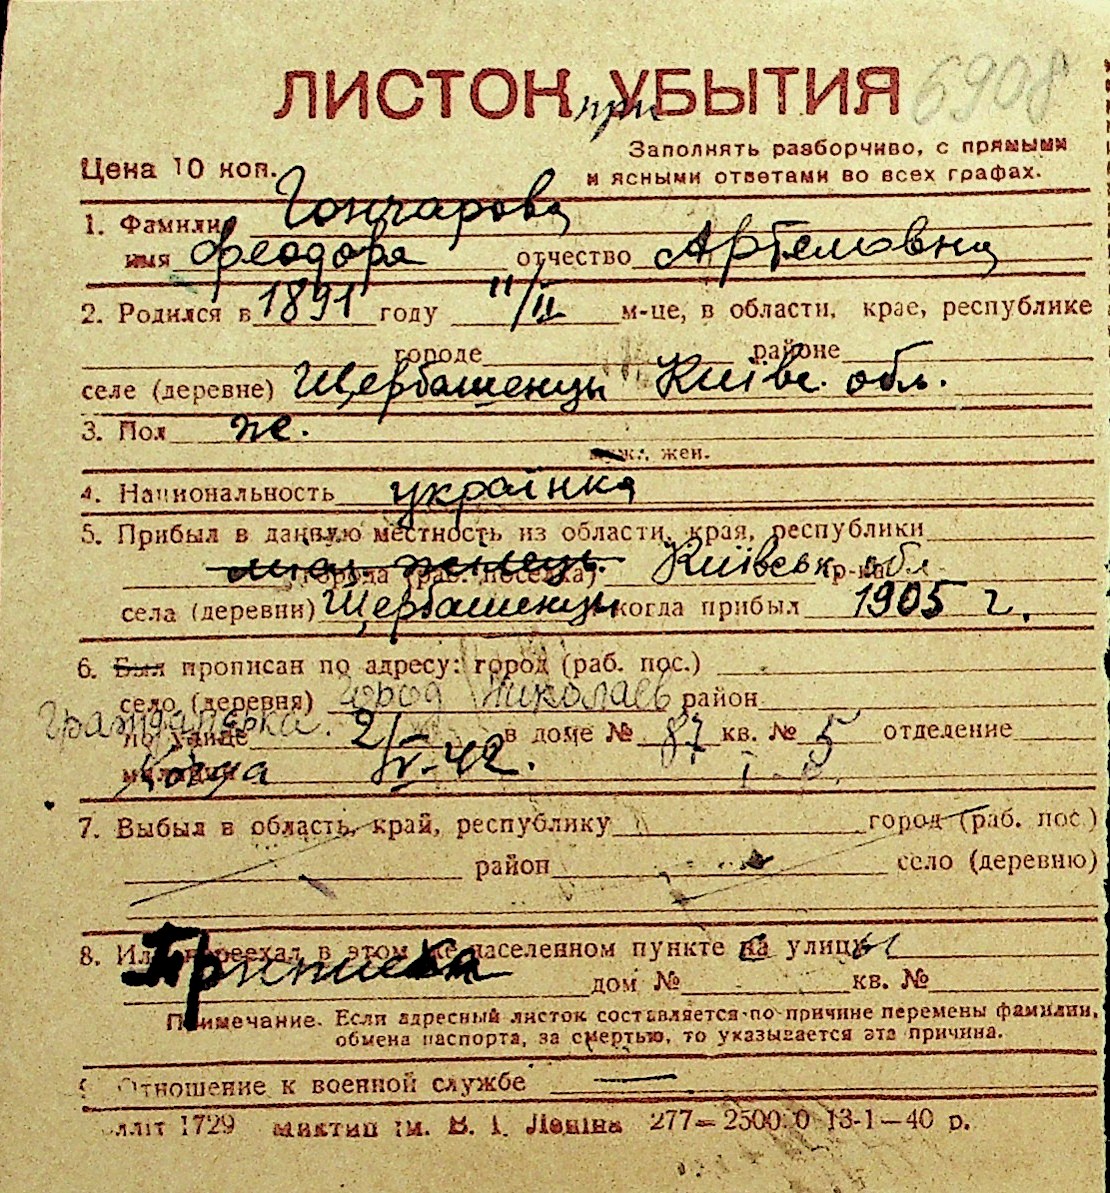 ЛИСТОК при УБЫТИЯ 6908
Цена 10 коп.
Заполнять разборчиво, с прямыми
и ясными ответами во всех графах.
1. Фамилия Гончарова
имя Феодора отчество Артемовна
2. Родился в 1891 году 11/II м-це, в области, крае, республике
городе районе
селе (деревне) Щербашенцы Київс. обл.
3. Пол ж.
муж., жен.
4. Национальность українка
5. Прибыл в данную местность из области, края, республики
города (раб. поселка) Київськ. обл р-на
села (деревни) Щербашенцы когда прибыл 1905 г.
6. Был прописан по адресу: город (раб. пос.)
село (деревня) город Николаев район
Гражданська.
по улице 2/IV-42. в доме № 87 кв. № 5 отделение
милиции Когда
7. Выбыл в область, край, республику город (раб. пос.)
район село (деревню)
8. Или переехал в этом же населенном пункте на улицу
Прописка дом № кв. №
Примечание. Если адресный листок составляется по причине перемены фамилии,
обмена паспорта, за смертью, то указывается эта причина.
9 Отношение к военной службе —
лліт 1729 Миктип ім. В. І. Леніна 277—2500 0 13-1—40 р.